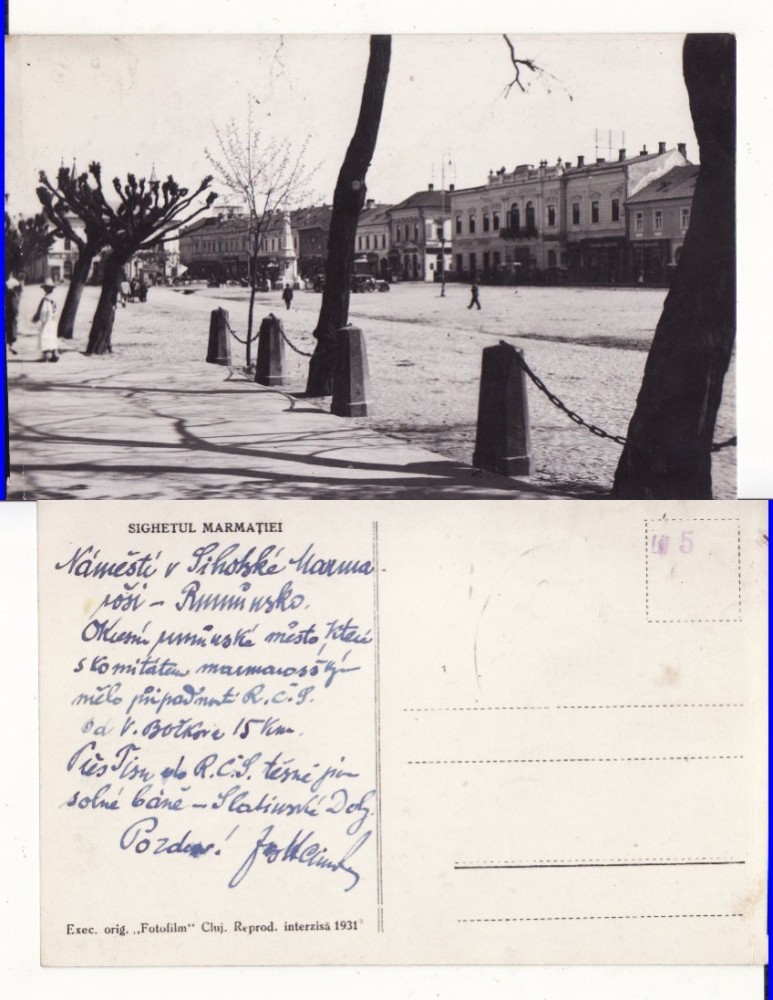 SIGHETUL MARMAȚIEI
Náměstí v Sihotské Marma-
roši – Rumunsko.
Okresní rumunské město, které
s komitátem marmarošským
mělo připadnout R.Č.S.
od V. Bočkova 15 km.
Přes Tisu do R.Č.S. těsně jsou
solné báně – Slatinské Doly.
Pozdrav!
Exec. orig. „Fotofilm" Cluj. Reprod. interzisă 1931
5